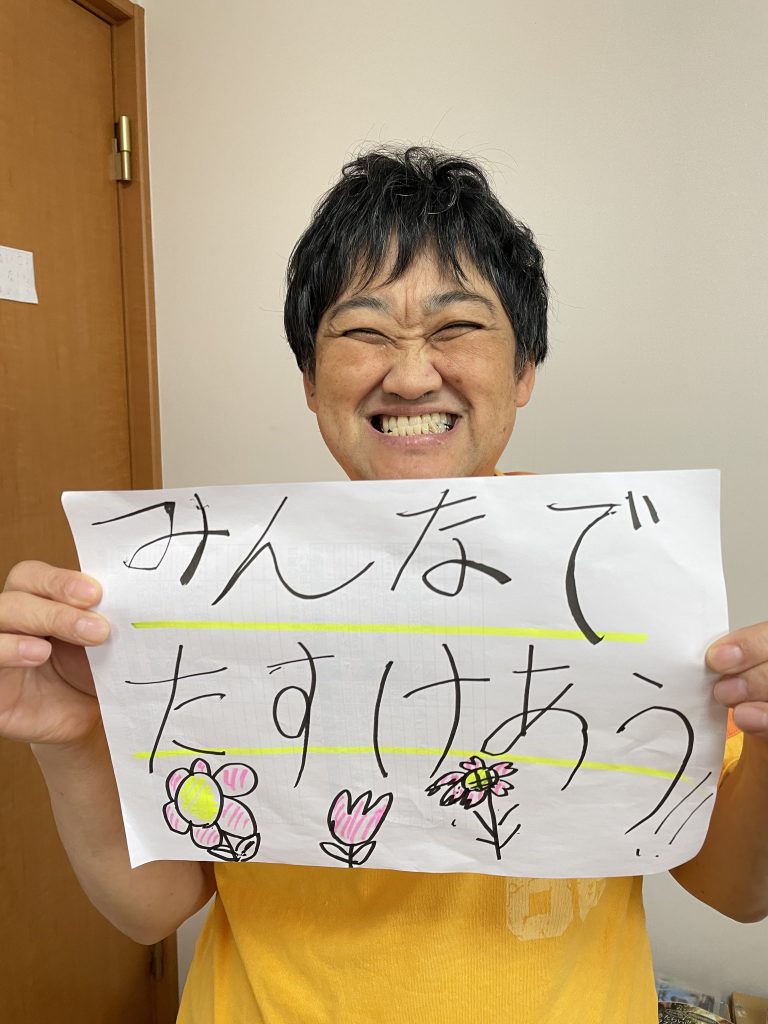 みんなで
たすけあう!!